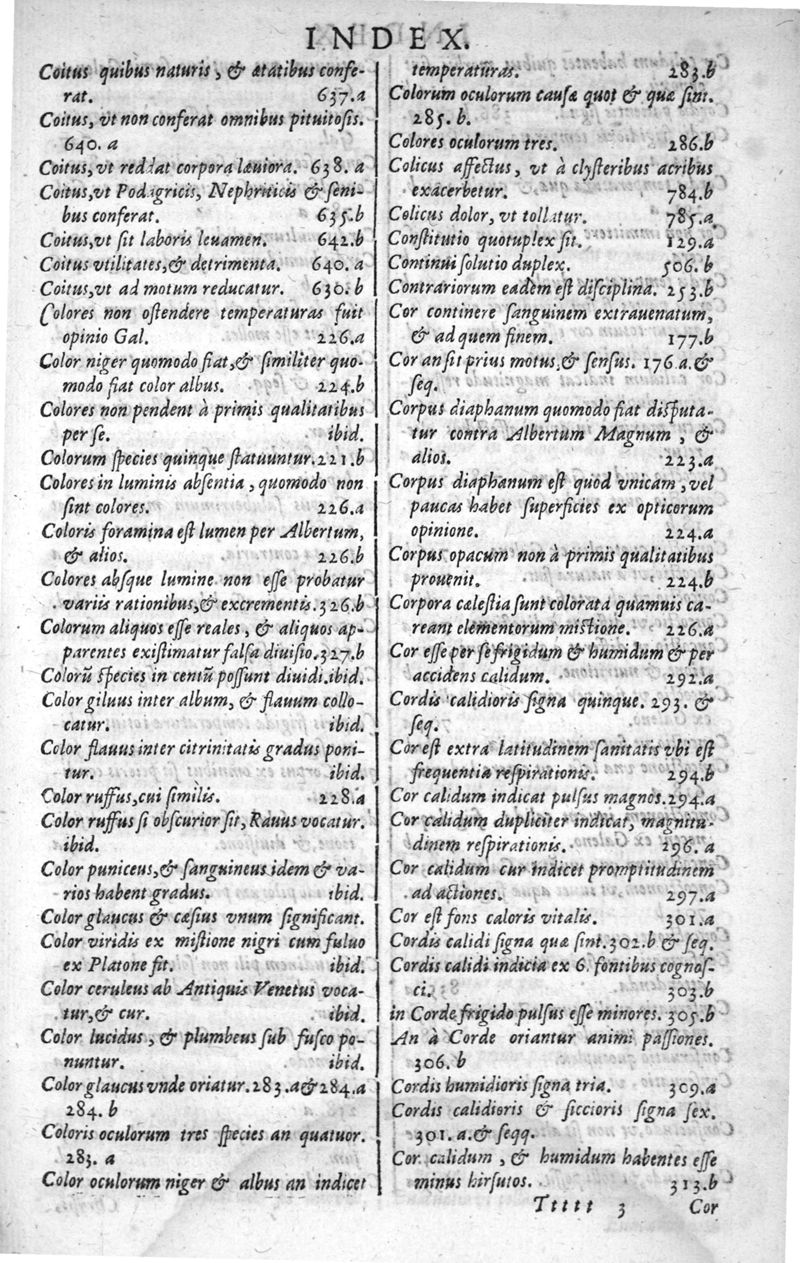 INDEX.
Coitus quibus naturis, & ætatibus confe-
rat. 637.a
Coitus, vt non conferat omnibus pituitosis.
640. a
Coitus, vt reddat corpora læuiora. 638. a
Coitus, vt Podagricis, Nephriticis & seni-
bus conferat. 635.b
Coitus, vt sit laboris leuamen. 642.b
Coitus vtilitates, & detrimenta. 640. a
Coitus, vt ad motum reducatur. 630. b
Colores non ostendere temperaturas fuit
opinio Gal. 226.a
Color niger quomodo fiat, & similiter quo-
modo fiat color albus. 224.b
Colores non pendent à primis qualitatibus
per se. ibid.
Colorum species quinque statuuntur. 221.b
Colores in luminis absentia, quomodo non
sint colores. 226.a
Coloris foramina est lumen per Albertum,
& alios. 226.b
Colores absque lumine non esse probatur
variis rationibus, & excrementis. 326.b
Colorum aliquos esse reales, & aliquos ap-
parentes existimatur falsa diuisio. 327.b
Colorũ species in centũ possunt diuidi. ibid.
Color giluus inter album, & flauum collo-
catur. ibid.
Color flauus inter citrinitatis gradus poni-
tur. ibid.
Color ruffus, cui similis. 228.a
Color ruffus si obscurior sit, Rauus vocatur.
ibid.
Color puniceus, & sanguineus idem & va-
rios habent gradus. ibid.
Color glaucus & cæsius vnum significant.
Color viridis ex mistione nigri cum fuluo
ex Platone fit. ibid.
Color ceruleus ab Antiquis Venetus voca-
tur, & cur. ibid.
Color lucidus, & plumbeus sub fusco po-
nuntur. ibid.
Color glaucus vnde oriatur. 283.a & 284.a
284. b
Coloris oculorum tres species an quatuor.
283. a
Color oculorum niger & albus an indicet
temperaturas. 283.b
Colorum oculorum causæ quot & quæ sint.
285. b.
Colores oculorum tres. 286.b
Colicus affectus, vt à clysteribus acribus
exacerbetur. 784.b
Colicus dolor, vt tollatur. 785.a
Constitutio quotuplex sit. 129.a
Continui solutio duplex. 506. b
Contrariorum eadem est disciplina. 253.b
Cor continere sanguinem extrauenatum,
& ad quem finem. 177.b
Cor an sit prius motus, & sensus. 176.a. &
seq.
Corpus diaphanum quomodo fiat disputa-
tur contra Albertum Magnum, &
alios. 223.a
Corpus diaphanum est quod vnicam, vel
paucas habet superficies ex opticorum
opinione. 224.a
Corpus opacum non à primis qualitatibus
prouenit. 224.b
Corpora cælestia sunt colorata quamuis ca-
reant elementorum mistione. 226.a
Cor esse per se frigidum & humidum & per
accidens calidum. 292.a
Cordis calidioris signa quinque. 293. &
seq.
Cor est extra latitudinem sanitatis vbi est
frequentia respirationis. 294.b
Cor calidum indicat pulsus magnos. 294.a
Cor calidum dupliciter indicat, magnitu-
dinem respirationis. 296. a
Cor calidum cur indicet promptitudinem
ad actiones. 297.a
Cor est fons caloris vitalis. 301.a
Cordis calidi signa quæ sint. 302.b & seq.
Cordis calidi indicia ex 6. fontibus cognos-
ci. 303.b
in Corde frigido pulsus esse minores. 305.b
An à Corde oriantur animi passiones.
306. b
Cordis humidioris signa tria. 309.a
Cordis calidioris & siccioris signa sex.
301. a. & seqq.
Cor calidum, & humidum habentes esse
minus hirsutos. 313.b
Ttttt 3 Cor